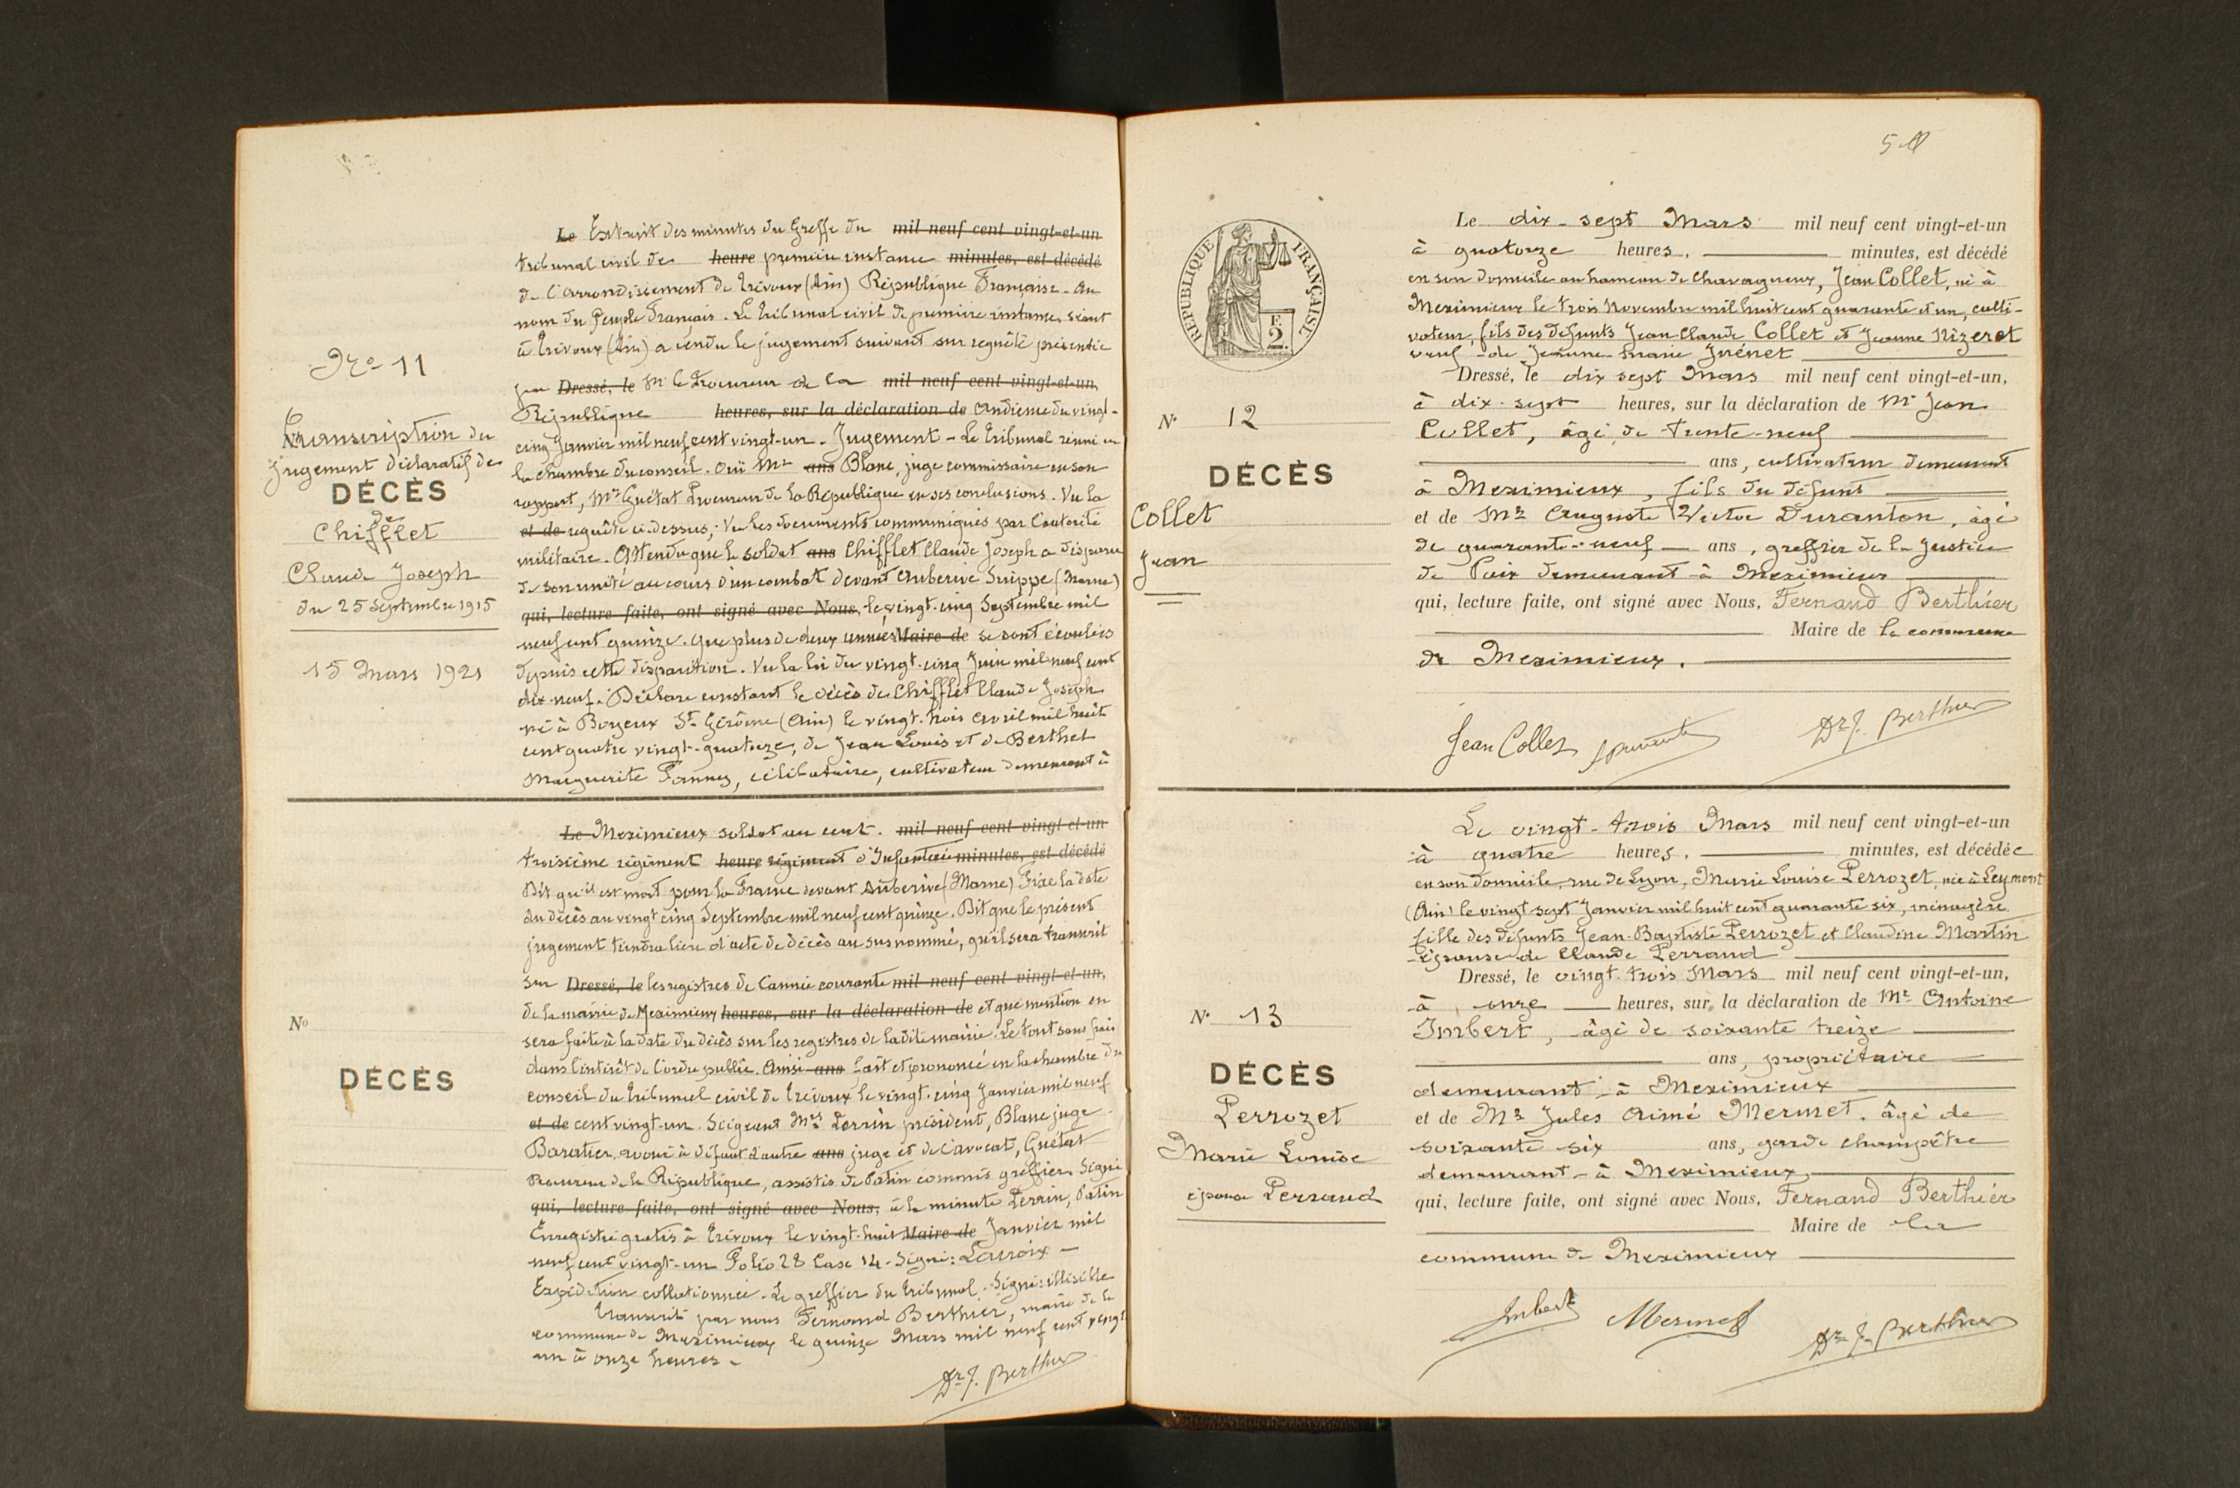 Nº 11
Transcription du
jugement déclaratif de
DÉCÈS
de
Chifflet
Claude Joseph
du 25 Septembre 1915
15 Mars 1921
Le Extrait des minutes du Greffe du mil neuf cent vingt-et-un
tribunal civil de heure première instance minutes, est décédé
de l'arrondissement de Trévoux (Ain) République Française - Au
nom du Peuple Français. Le Tribunal civil de première instance séant
à Trévoux (Ain) a rendu le jugement suivant sur requête présentée
par Dressé, le Mr le Procureur de la mil neuf cent vingt-et-un,
République heures, sur la déclaration de Audience du vingt-
cinq Janvier mil neuf cent vingt-un - Jugement - Le Tribunal réuni en
la chambre du conseil. Ouï Mr ans Blanc, juge commissaire en son
rapport, Mr Guétat Procureur de la République en ses conclusions. Vu la
et de requête ci-dessus; Vu les documents communiqués par l'autorité
militaire. Attendu que le soldat ans Chifflet Claude Joseph a disparu
de son unité au cours d'un combat devant Auberive Suippe (Marne)
qui, lecture faite, ont signé avec Nous, le vingt-cinq Septembre mil
neuf cent quinze. Que plus de deux années Maire de se sont écoulées
depuis cette disparition. Vu la loi du vingt-cinq Juin mil neuf cent
dix-neuf. Déclare constant le décès de Chifflet Claude Joseph
né à Boyeux St Gérôme (Ain) le vingt-trois avril mil huit
cent quatre vingt-quatorze, de Jean Louis et de Berthet
Marguerite Fanny, célibataire, cultivateur demeurant à
Nº
DÉCÈS
Le Meximieux soldat au cent. mil neuf cent vingt-et-un
troisième régiment heure régiment d'Infanterie minutes, est décédé
Dit qu'il est mort pour la France devant Auberive (Marne) Fixe la date
du décès au vingt cinq Septembre mil neuf cent quinze. Dit que le présent
jugement tiendra lieu d'acte de décès au susnommé, qu'il sera transcrit
sur Dressé, le les registres de l'année courante mil neuf cent vingt-et-un,
de la mairie de Meximieux heures, sur la déclaration de et que mention en
sera faite à la date du décès sur les registres de ladite mairie. Le tout sans frais
dans l'intérêt de l'ordre public. Ainsi ans fait et prononcé en la chambre du
conseil du Tribunal civil de Trévoux le vingt-cinq Janvier mil neuf
et de cent vingt-un. Siégeant Mrs Perrin président, Blanc juge
Baratier, avoué à défaut d'autre ans juge et de l'avocat, Guétat
Procureur de la République, assistés de Patin commis greffier. Signé
qui, lecture faite, ont signé avec Nous, à la minute Perrin, Patin
Enregistré gratis à Trévoux le vingt-huit Maire de Janvier mil
neuf cent vingt-un Folio 28 Case 14. Signé: Lacroix -
Expédition collationnée - Le greffier du Tribunal - Signé: illisible
Transcrit par nous Fernand Berthier, maire de la
commune de Meximieux le quinze Mars mil neuf cent vingt
un à onze heures.
Dr F. Berthier
RÉPUBLIQUE FRANÇAISE
2 F
Nº 12
DÉCÈS
Collet
Jean
Le dix-sept Mars mil neuf cent vingt-et-un
à quatorze heures. minutes, est décédé
en son domicile au hameau de Chavagneux, Jean Collet, né à
Meximieux le trois Novembre mil huit cent quarante et un, culti-
vateur, fils des défunts Jean Claude Collet et Jeanne Nizeret
veuf de Jeanne-Marie Juénet
Dressé, le dix sept Mars mil neuf cent vingt-et-un,
à dix-sept heures, sur la déclaration de Mr Jean
Collet, âgé de trente-neuf
ans, cultivateur demeurant
à Meximieux, fils du défunt
et de Mr Auguste Victor Duranton, âgé
de quarante-neuf ans, greffier de la Justice
de Paix demeurant à Meximieux
qui, lecture faite, ont signé avec Nous, Fernand Berthier
Maire de la commune
de Meximieux.
Jean Collet Dr F. Berthier
Nº 13
DÉCÈS
Perrozet
Marie Louise
épouse Perraud
Le vingt-trois Mars mil neuf cent vingt-et-un
à quatre heures. minutes, est décédée
en son domicile, rue de Lyon, Marie Louise Perrozet, née à Leyment
(Ain) le vingt sept Janvier mil huit cent quarante six, ménagère
fille des défunts Jean-Baptiste Perrozet et Claudine Martin
épouse de Claude Perraud
Dressé, le vingt-trois Mars mil neuf cent vingt-et-un,
à onze heures, sur la déclaration de Mr Antoine
Imbert, âgé de soixante treize
ans, propriétaire
demeurant à Meximieux
et de Mr Jules Aimé Mermet, âgé de
soixante six ans, garde champêtre
demeurant à Meximieux
qui, lecture faite, ont signé avec Nous, Fernand Berthier
Maire de la
commune de Meximieux
Imbert Mermet Dr F. Berthier